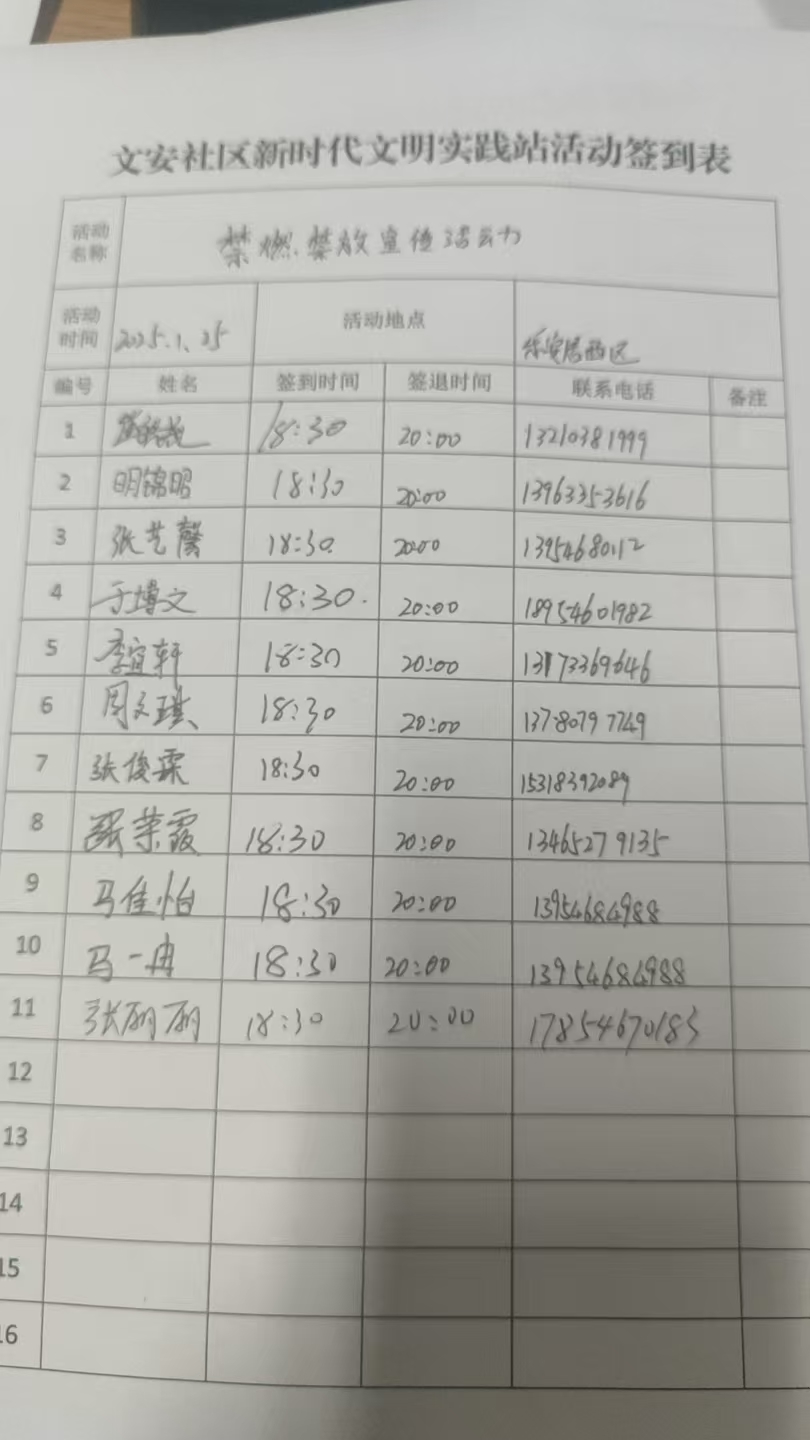 文安社区新时代文明实践站活动签到表
活动名称 禁燃禁放宣传活动
活动时间 2025.1.25 活动地点 乐安居西区
编号 姓名 签到时间 签退时间 联系电话 备注
1 18:30 20:00 13210381999
2 明锦昭 18:30 20:00 13963353616
3 张艺馨 18:30 20:00 13954680112
4 于博文 18:30. 20:00 18954601982
5 李宜轩 18:30 20:00 13173369646
6 周文琪 18:30 20:00 13780797749
7 张俊霖 18:30 20:00 15318392089
8 张荣霞 18:30 20:00 13465279135
9 马佳怡 18:30 20:00 13954684988
10 马一冉 18:30 20:00 13954684988
11 张丽丽 18:30 20:00 17854670183
12
13
14
15
16